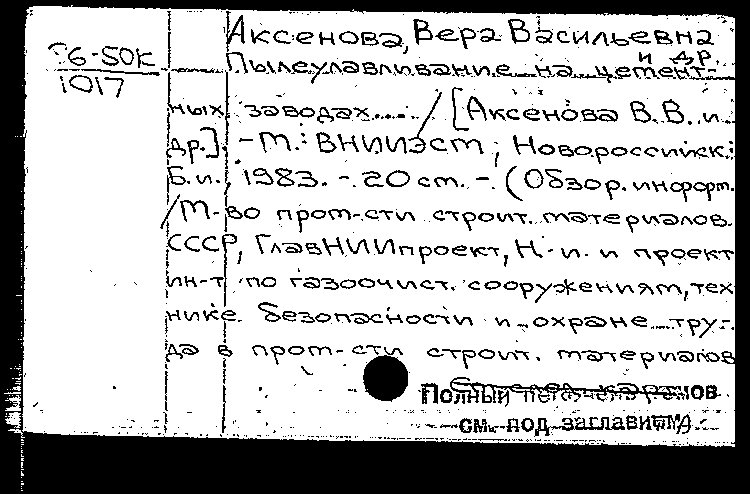 Аксенова, Вера Васильевна
и др.
36-50К
1017
Пылеулавливание на цемент-
ных заводах..... / [Аксенова В.В. и
др.]. - М.: ВНИИЭСМ; Новороссийск:
Б.и., 1983. - 20 см. - (Обзор. информ.
/М-во пром-сти строит. материалов
СССР, ГлавНИИпроект, Н.-и. и проект
ин-т по газоочист. сооружениям, тех
нике безопасности и охране тру-
да в пром-сти строит. материалов
Полный
см. под заглавием